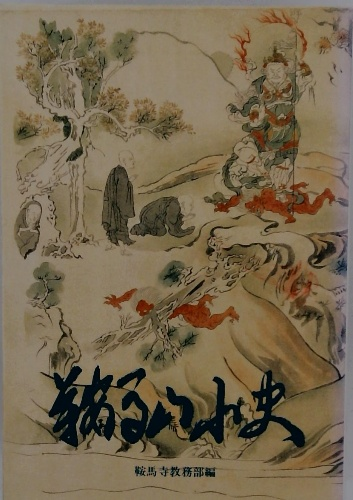 鞍馬山小史
鞍馬寺教務部編